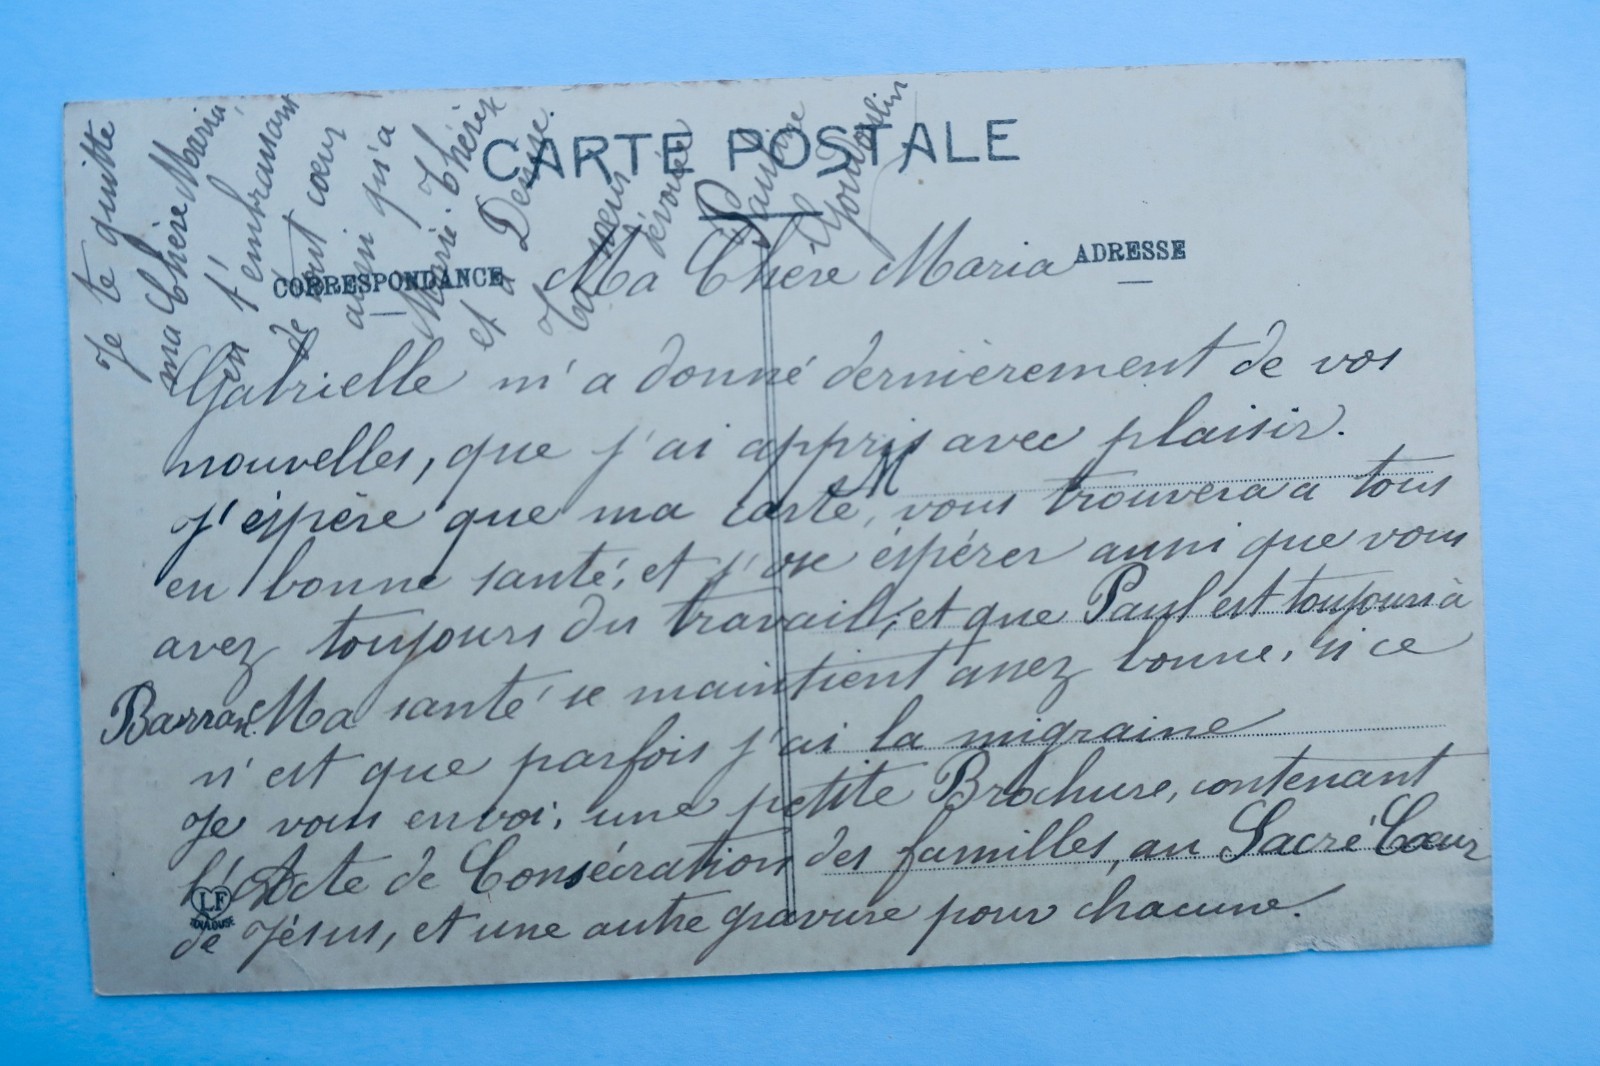 CARTE POSTALE
CORRESPONDANCE
ADRESSE
Ma Chère Maria
Gabrielle m'a donné dernièrement de vos
nouvelles, que j'ai appris avec plaisir.
M
J'éspère que ma carte, vous trouvera a tous
en bonne santé, et j'ose éspérer aussi que vous
avez toujours du travail, et que Paul est toujours à
Ma santé se maintient assez bonne, si ce
n'est que parfois j'ai la migraine
Je vous envoi, une petite Brochure, contenant
l'Acte de Consécration des familles, au Sacré Cœur
de Jésus, et une autre gravure pour chacune.
LF
TOULOUSE
Je te quitte
ma Chère Maria
en t'embrassant
de tout cœur
ainsi qu'a
Marie Thérèse
et a Denise.
Ta sœur
dévouée
Pauline